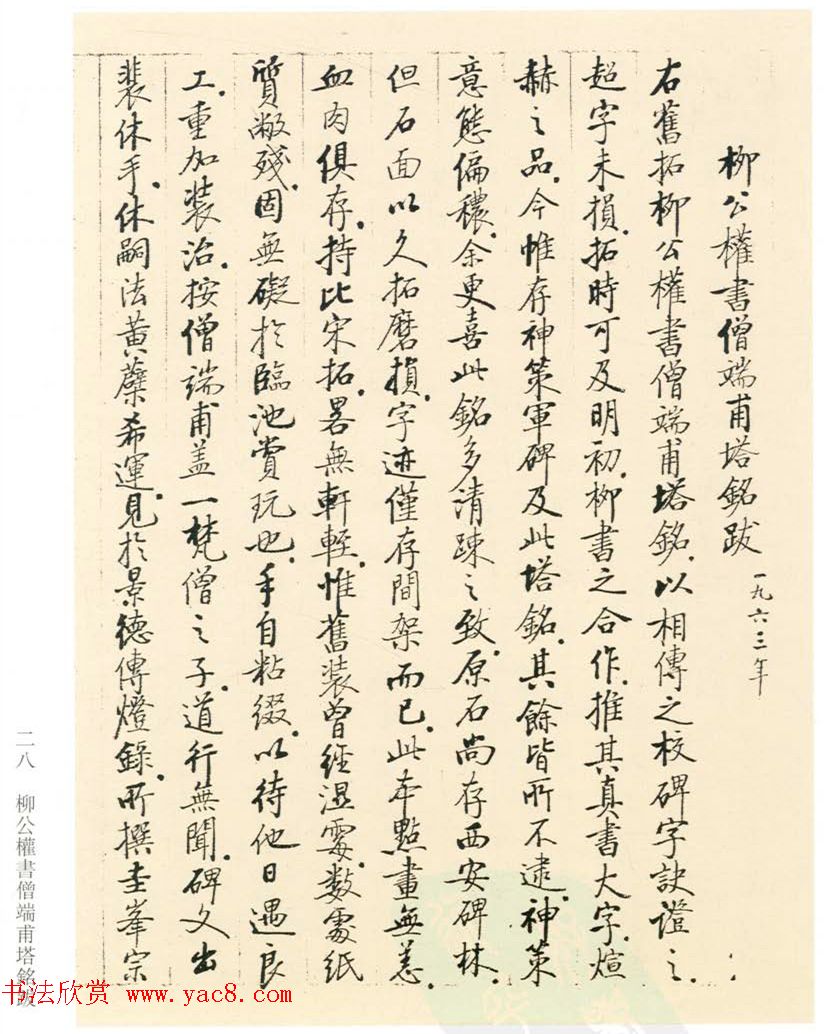 柳公權書僧端甫塔銘跋 一九六三年
右舊拓柳公權書僧端甫塔銘.以相傳之校碑字訣證之.
超字未損.拓時可及明初.柳書之合作.推其真書大字.煊
赫之品.今惟存神策軍碑及此塔銘.其餘皆所不逮.神策
意態偏穠.余更喜此銘多清疎之致.原石尚存西安碑林.
但石面以久拓磨損.字迹僅存間架而已.此本點畫無恙.
血肉俱存.持比宋拓.畧無軒輊.惟舊裝曾經濕霉.數處紙
質敝殘.固無礙於臨池賞玩也.手自粘綴.以待他日遇良
工.重加裝治.按僧端甫蓋一梵僧之子.道行無聞.碑文出
裴休手.休嗣法黃蘗希運.見於景德傳燈錄.所撰圭峯宗
二八 柳公權書僧端甫塔銘跋
书法欣赏 www.yac8.com